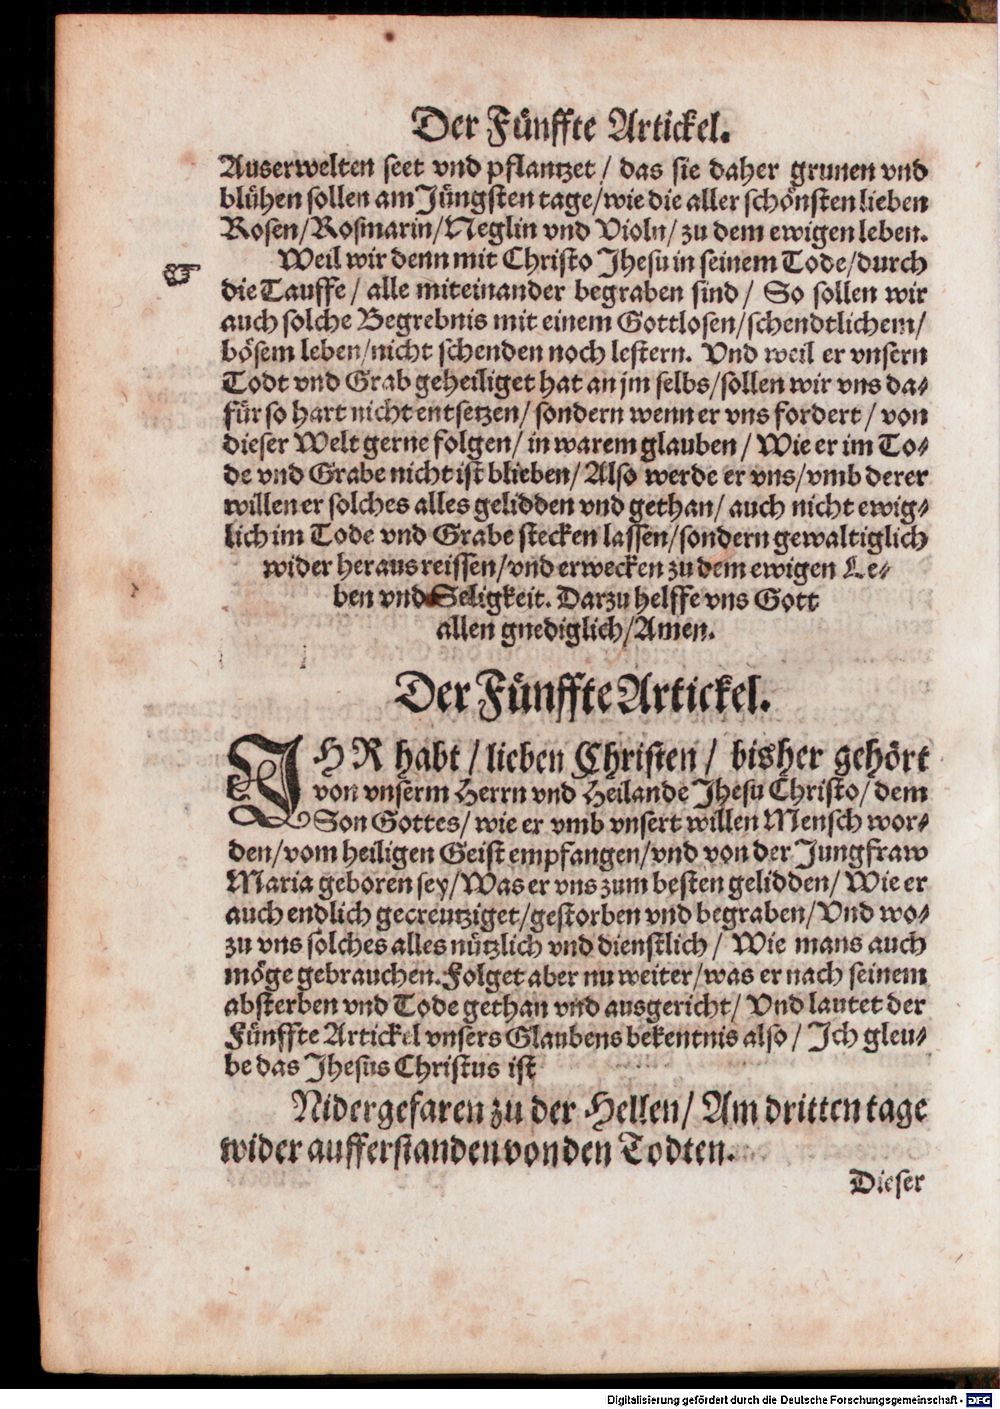 Der Fünffte Artickel.
Auserwelten seet vnd pflantzet / das sie daher grunen vnd
blühen sollen am Jüngsten tage/wie die aller schönsten lieben
Rosen/Rosmarin/Neglin vnd Violn/zu dem ewigen leben.
☞ Weil wir denn mit Christo Jhesu in seinem Tode/durch
die Tauffe / alle miteinander begraben sind / So sollen wir
auch solche Begrebnis mit einem Gottlosen/schendtlichem/
bösem leben/nicht schenden noch lestern. Vnd weil er vnsern
Todt vnd Grab geheiliget hat an jm selbs/sollen wir vns da-
für so hart nicht entsetzen/sondern wenn er vns fordert / von
dieser Welt gerne folgen/in warem glauben / Wie er im To-
de vnd Grabe nicht ist blieben/Also werde er vns/vmb derer
willen er solches alles gelidden vnd gethan/auch nicht ewig-
lich im Tode vnd Grabe stecken lassen/sondern gewaltiglich
wider heraus reissen/vnd erwecken zu dem ewigen Le-
ben vnd Seligkeit. Darzu helffe vns Gott
allen gnediglich/Amen.
Der Fünffte Artickel.
JHR habt / lieben Christen / bisher gehört
von vnserm Herrn vnd Heilande Jhesu Christo/dem
Son Gottes/wie er vmb vnsert willen Mensch wor-
den/vom heiligen Geist empfangen/vnd von der Jungfraw
Maria geboren sey/Was er vns zum besten gelidden/Wie er
auch endlich gecreutziget/gestorben vnd begraben/Vnd wo-
zu vns solches alles nützlich vnd dienstlich / Wie mans auch
möge gebrauchen. Folget aber nu weiter/was er nach seinem
absterben vnd Tode gethan vnd ausgericht/Vnd lautet der
Fünffte Artickel vnsers Glaubens bekentnis also / Jch gleu-
be das Jhesus Christus ist
Nidergefaren zu der Hellen/Am dritten tage
wider aufferstanden von den Todten.
Dieser
Digitalisierung gefördert durch die Deutsche Forschungsgemeinschaft - DFG